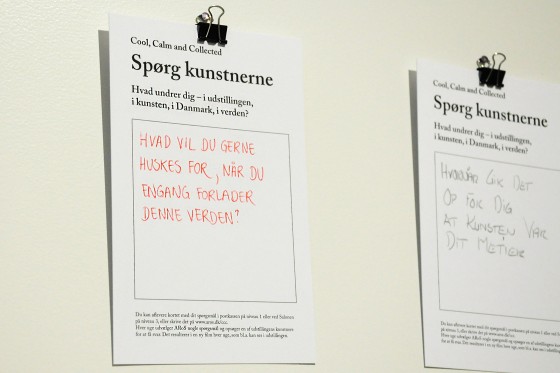 Cool, Calm and Collected
Spørg kunstnerne
Hvad undrer dig – i udstillingen,
i kunsten, i Danmark, i verden?
HVAD VIL DU GERNE
HUSKES FOR, NÅR DU
ENGANG FORLADER
DENNE VERDEN?
Du kan aflevere kortet med dit spørgsmål i postkassen på niveau 1 eller ved Saloner
på niveau 5, eller skrive det på www.aros.dk/ccc.
Hver uge udvælger ARoS nogle spørgsmål og opsøger en af udstillingens kunstnere
for at få svar. Det resulterer i en ny film hver uge, som bl.a. kan ses i udstillingen.
Cool, Calm and Collected
Spørg kunstnerne
Hvad undrer dig – i udstillingen,
i kunsten, i Danmark, i verden?
HVORNÅR GIK DET
OP FOR DIG
AT KUNSTEN VAR
DIT METIER
Du kan aflevere kortet med dit spørgsmål i postkassen på niveau 1
på niveau 5, eller skrive det på www.aros.dk/ccc.
Hver uge udvælger ARoS nogle spørgsmål og opsøger en af
for at få svar. Det resulterer i en ny film hver uge, som bl.a.